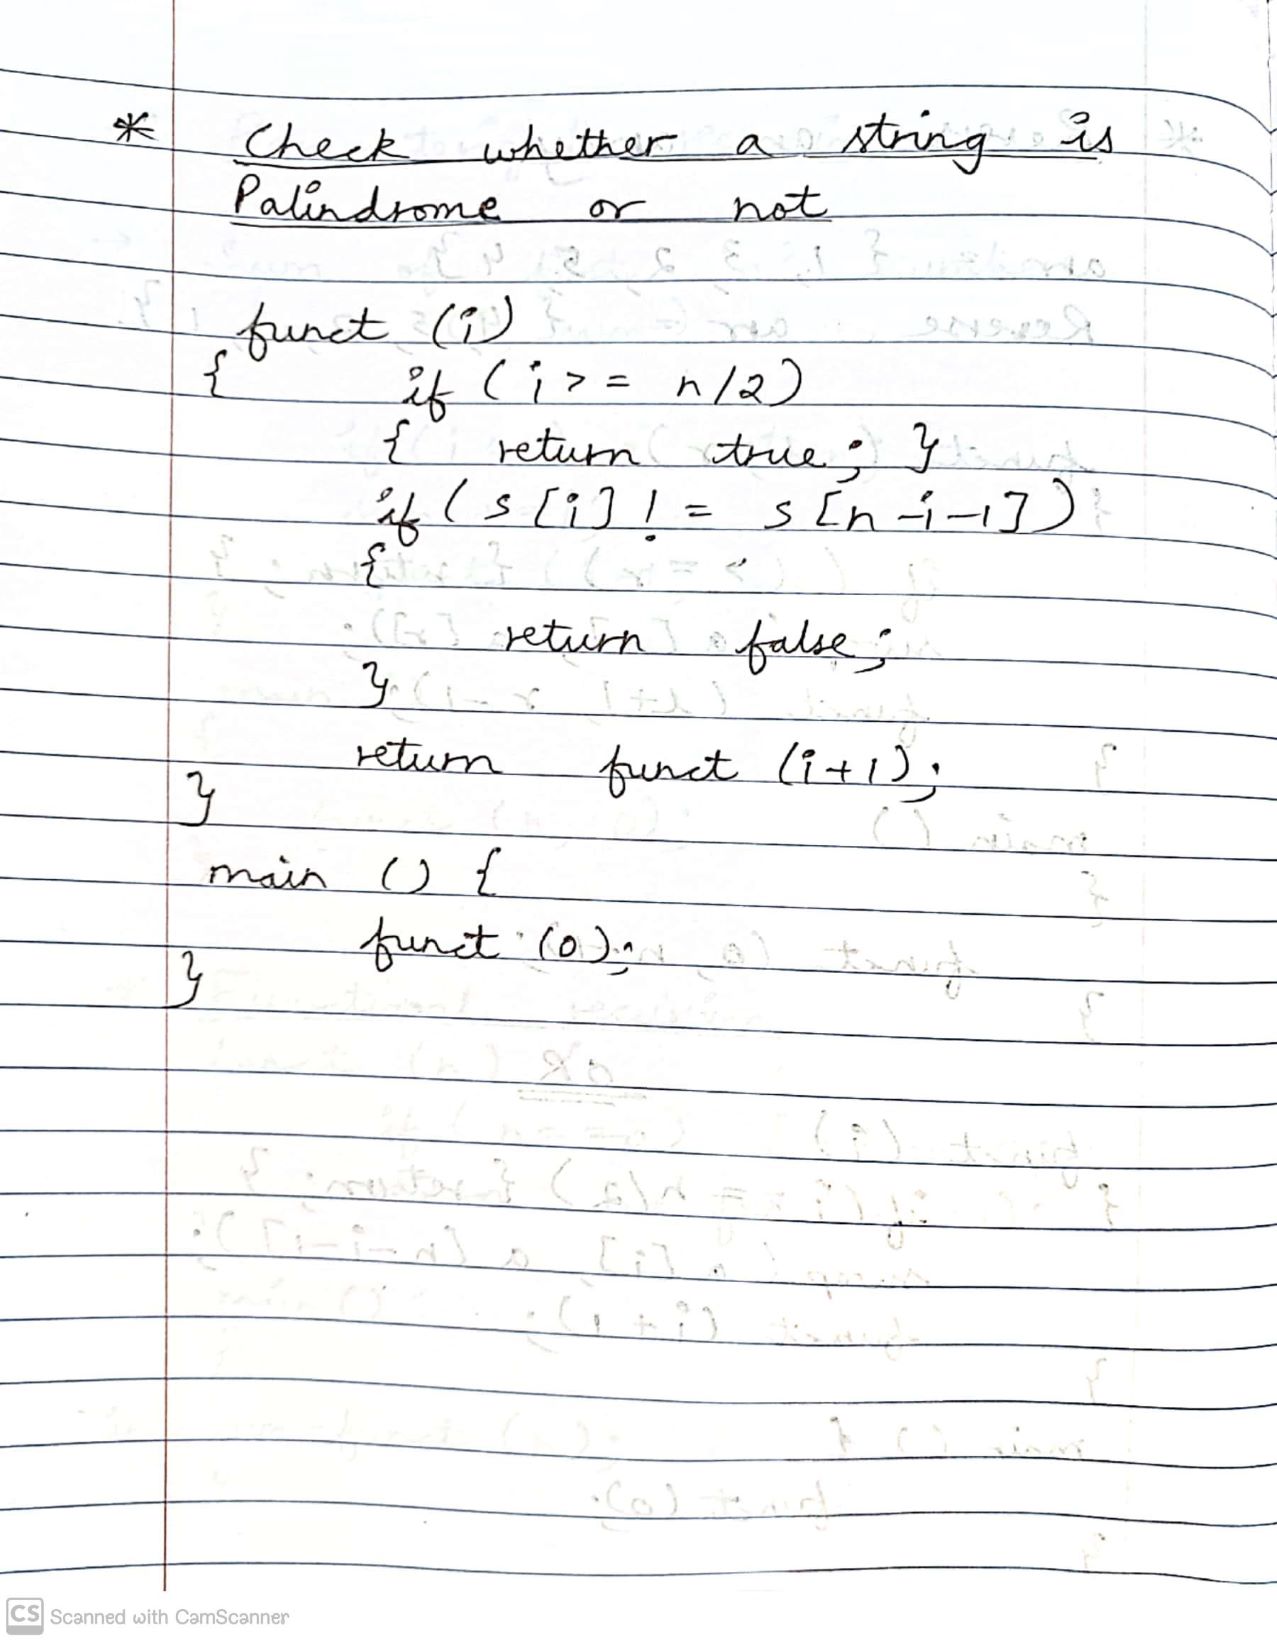 * Check whether a string is
Palindrome or not
funct (i)
{ if ( i >= n/2)
{ return true; }
if ( s [i] != s [n-i-1])
{
return false;
}
return funct (i+1);
}
main () {
funct (0);
}
CS Scanned with CamScanner